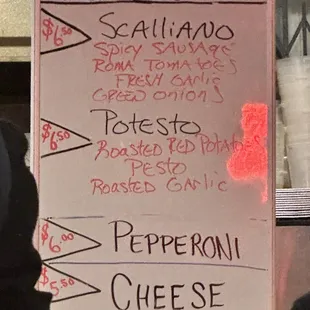 $6.50 SCALLIANO
SPICY SAUSAGE
ROMA TOMATOES
FRESH GARLIC
GREEN ONIONS
$6.50 POTESTO
ROASTED RED POTATOES
PESTO
ROASTED GARLIC
$6.00 PEPPERONI
$5.50 CHEESE